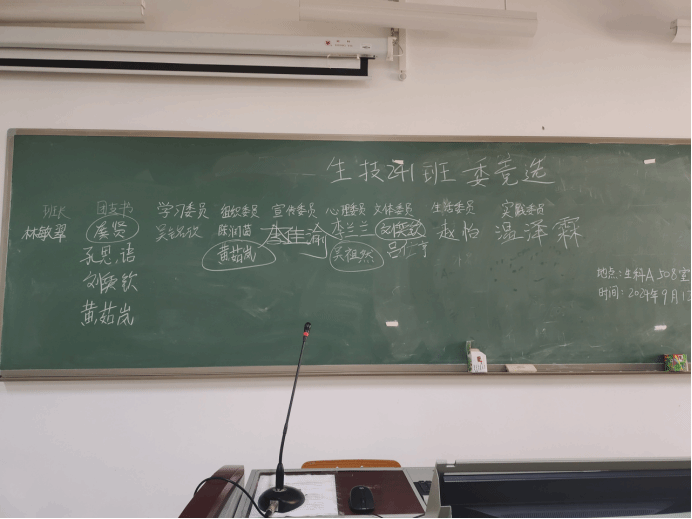 生技241班委竞选
班长 团支书 学习委员 组织委员 宣传委员 心理委员 文体委员 生活委员 实践委员
林敏翠 李佳渝 李兰兰 赵怡 温泽霖
黄茹岚 吴祖然
孔思语
刘奕钦
黄茹岚
地点:生科A508室
时间:2024年9月1